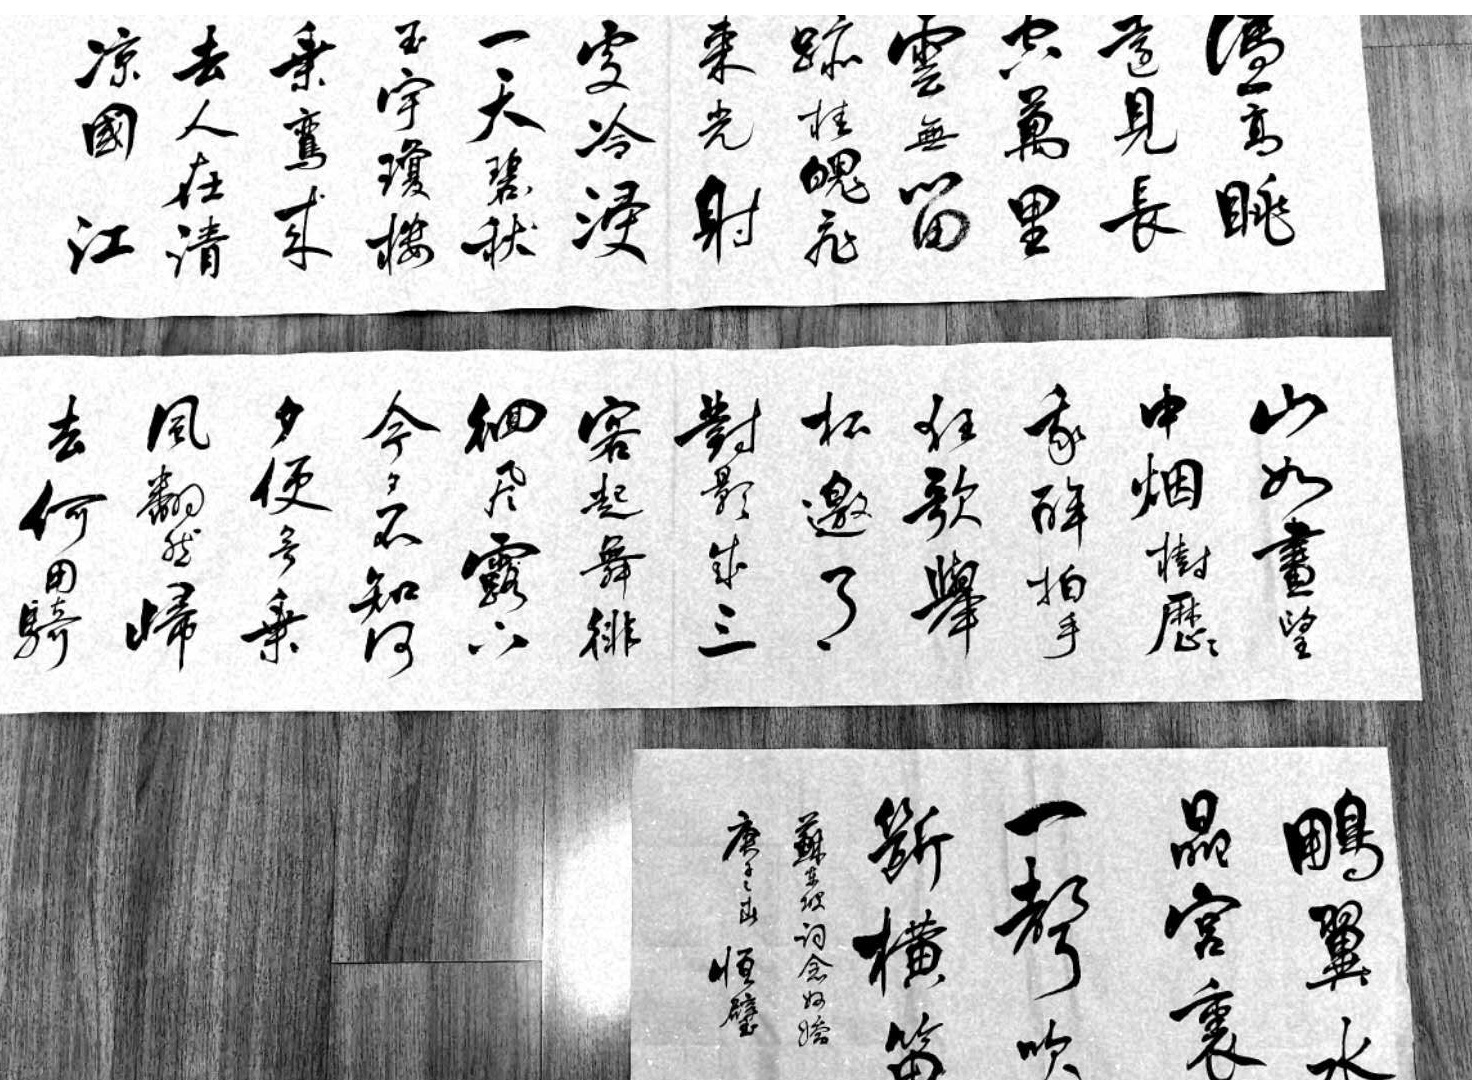 憑高眺
遠見長
空萬里
雲無留
跡桂魄飛
來光射
處冷浸
一天碧秋
玉宇瓊樓
乘鸞來
去人在清
凉國江
山如畫望
中烟樹歷々
我醉拍手
狂歌舉
杯邀月
對影成三
客起舞徘
徊風露下
今夕不知何
夕便欲乘
風翻然歸
去何用騎
鵬翼水
晶宮裏
一聲吹
斷橫笛
蘇東坡詞念奴嬌
庚子之春恒璧